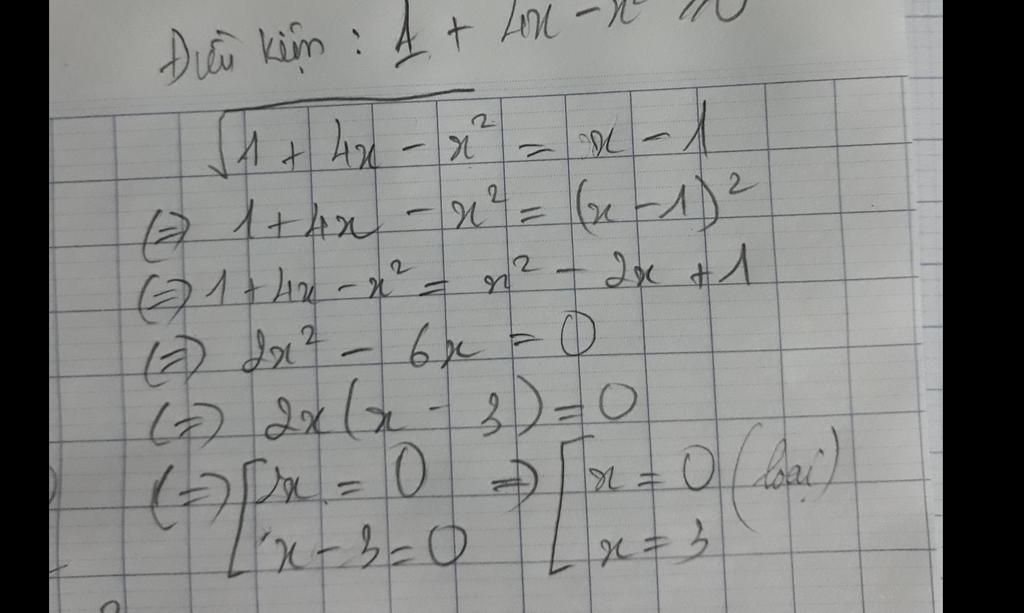 Điều kiện : 1 + 4x - x² ≥ 0
√(1 + 4x - x²) = x - 1
(=) 1 + 4x - x² = (x - 1)²
(=) 1 + 4x - x² = x² - 2x + 1
(=) 2x² - 6x = 0
(=) 2x(x - 3) = 0
(=) [ 2x = 0 => [ x = 0 (loại)
x - 3 = 0 x = 3